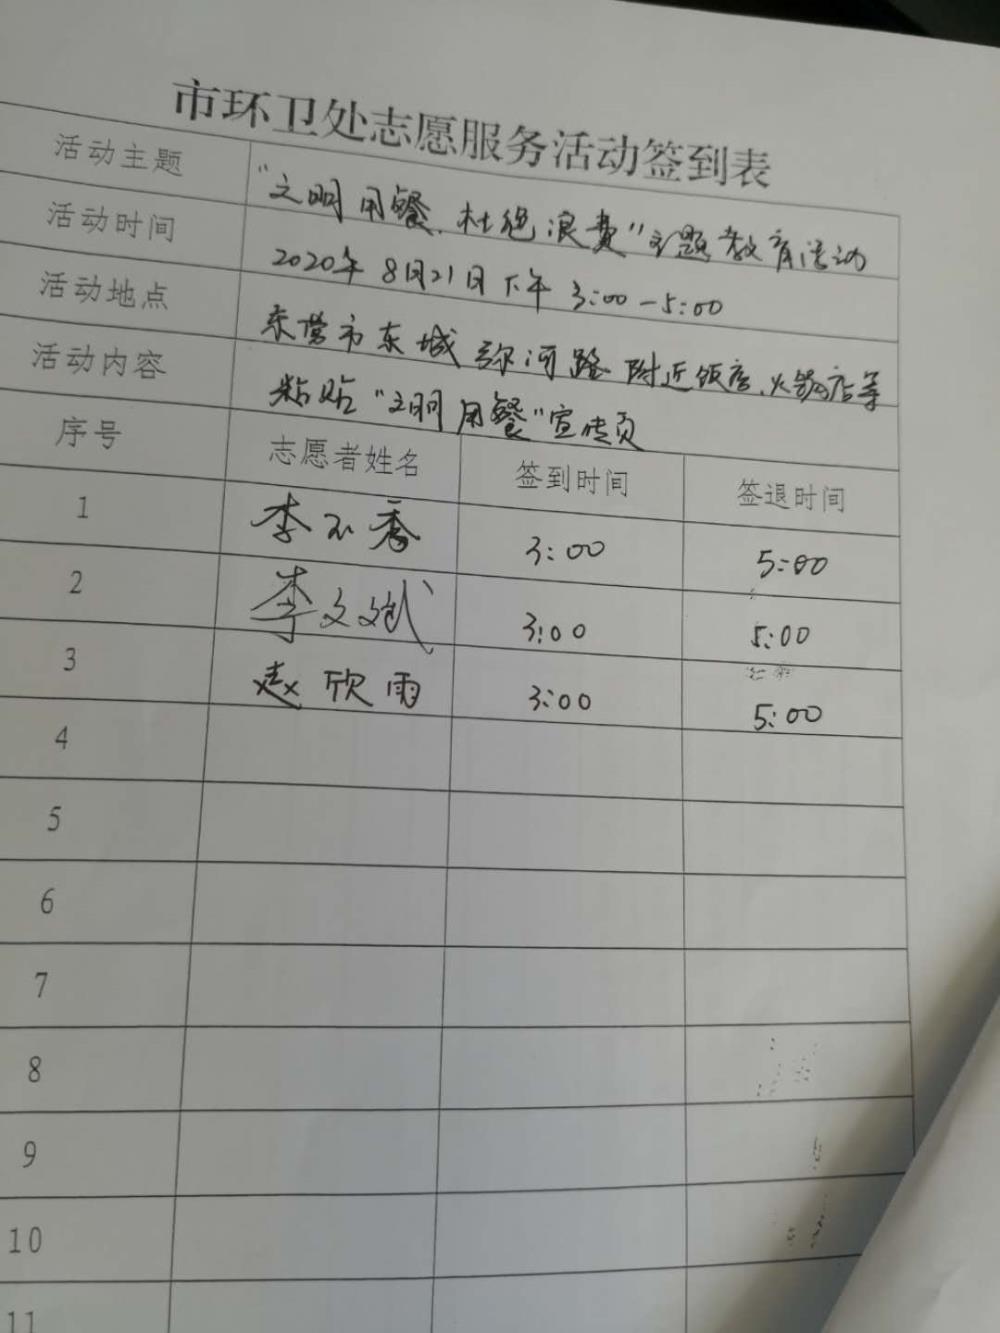 市环卫处志愿服务活动签到表
活动主题 "文明用餐、杜绝浪费"主题教育活动
活动时间 2020年8月21日下午 3:00-5:00
活动地点 东营市东城 弥河路 附近饭店、火锅店等
活动内容 粘贴"文明用餐"宣传页
序号 志愿者姓名 签到时间 签退时间
1 李不秀 3:00 5:00
2 李文斌 3:00 5:00
3 赵欣雨 3:00 5:00
4
5
6
7
8
9
10
11